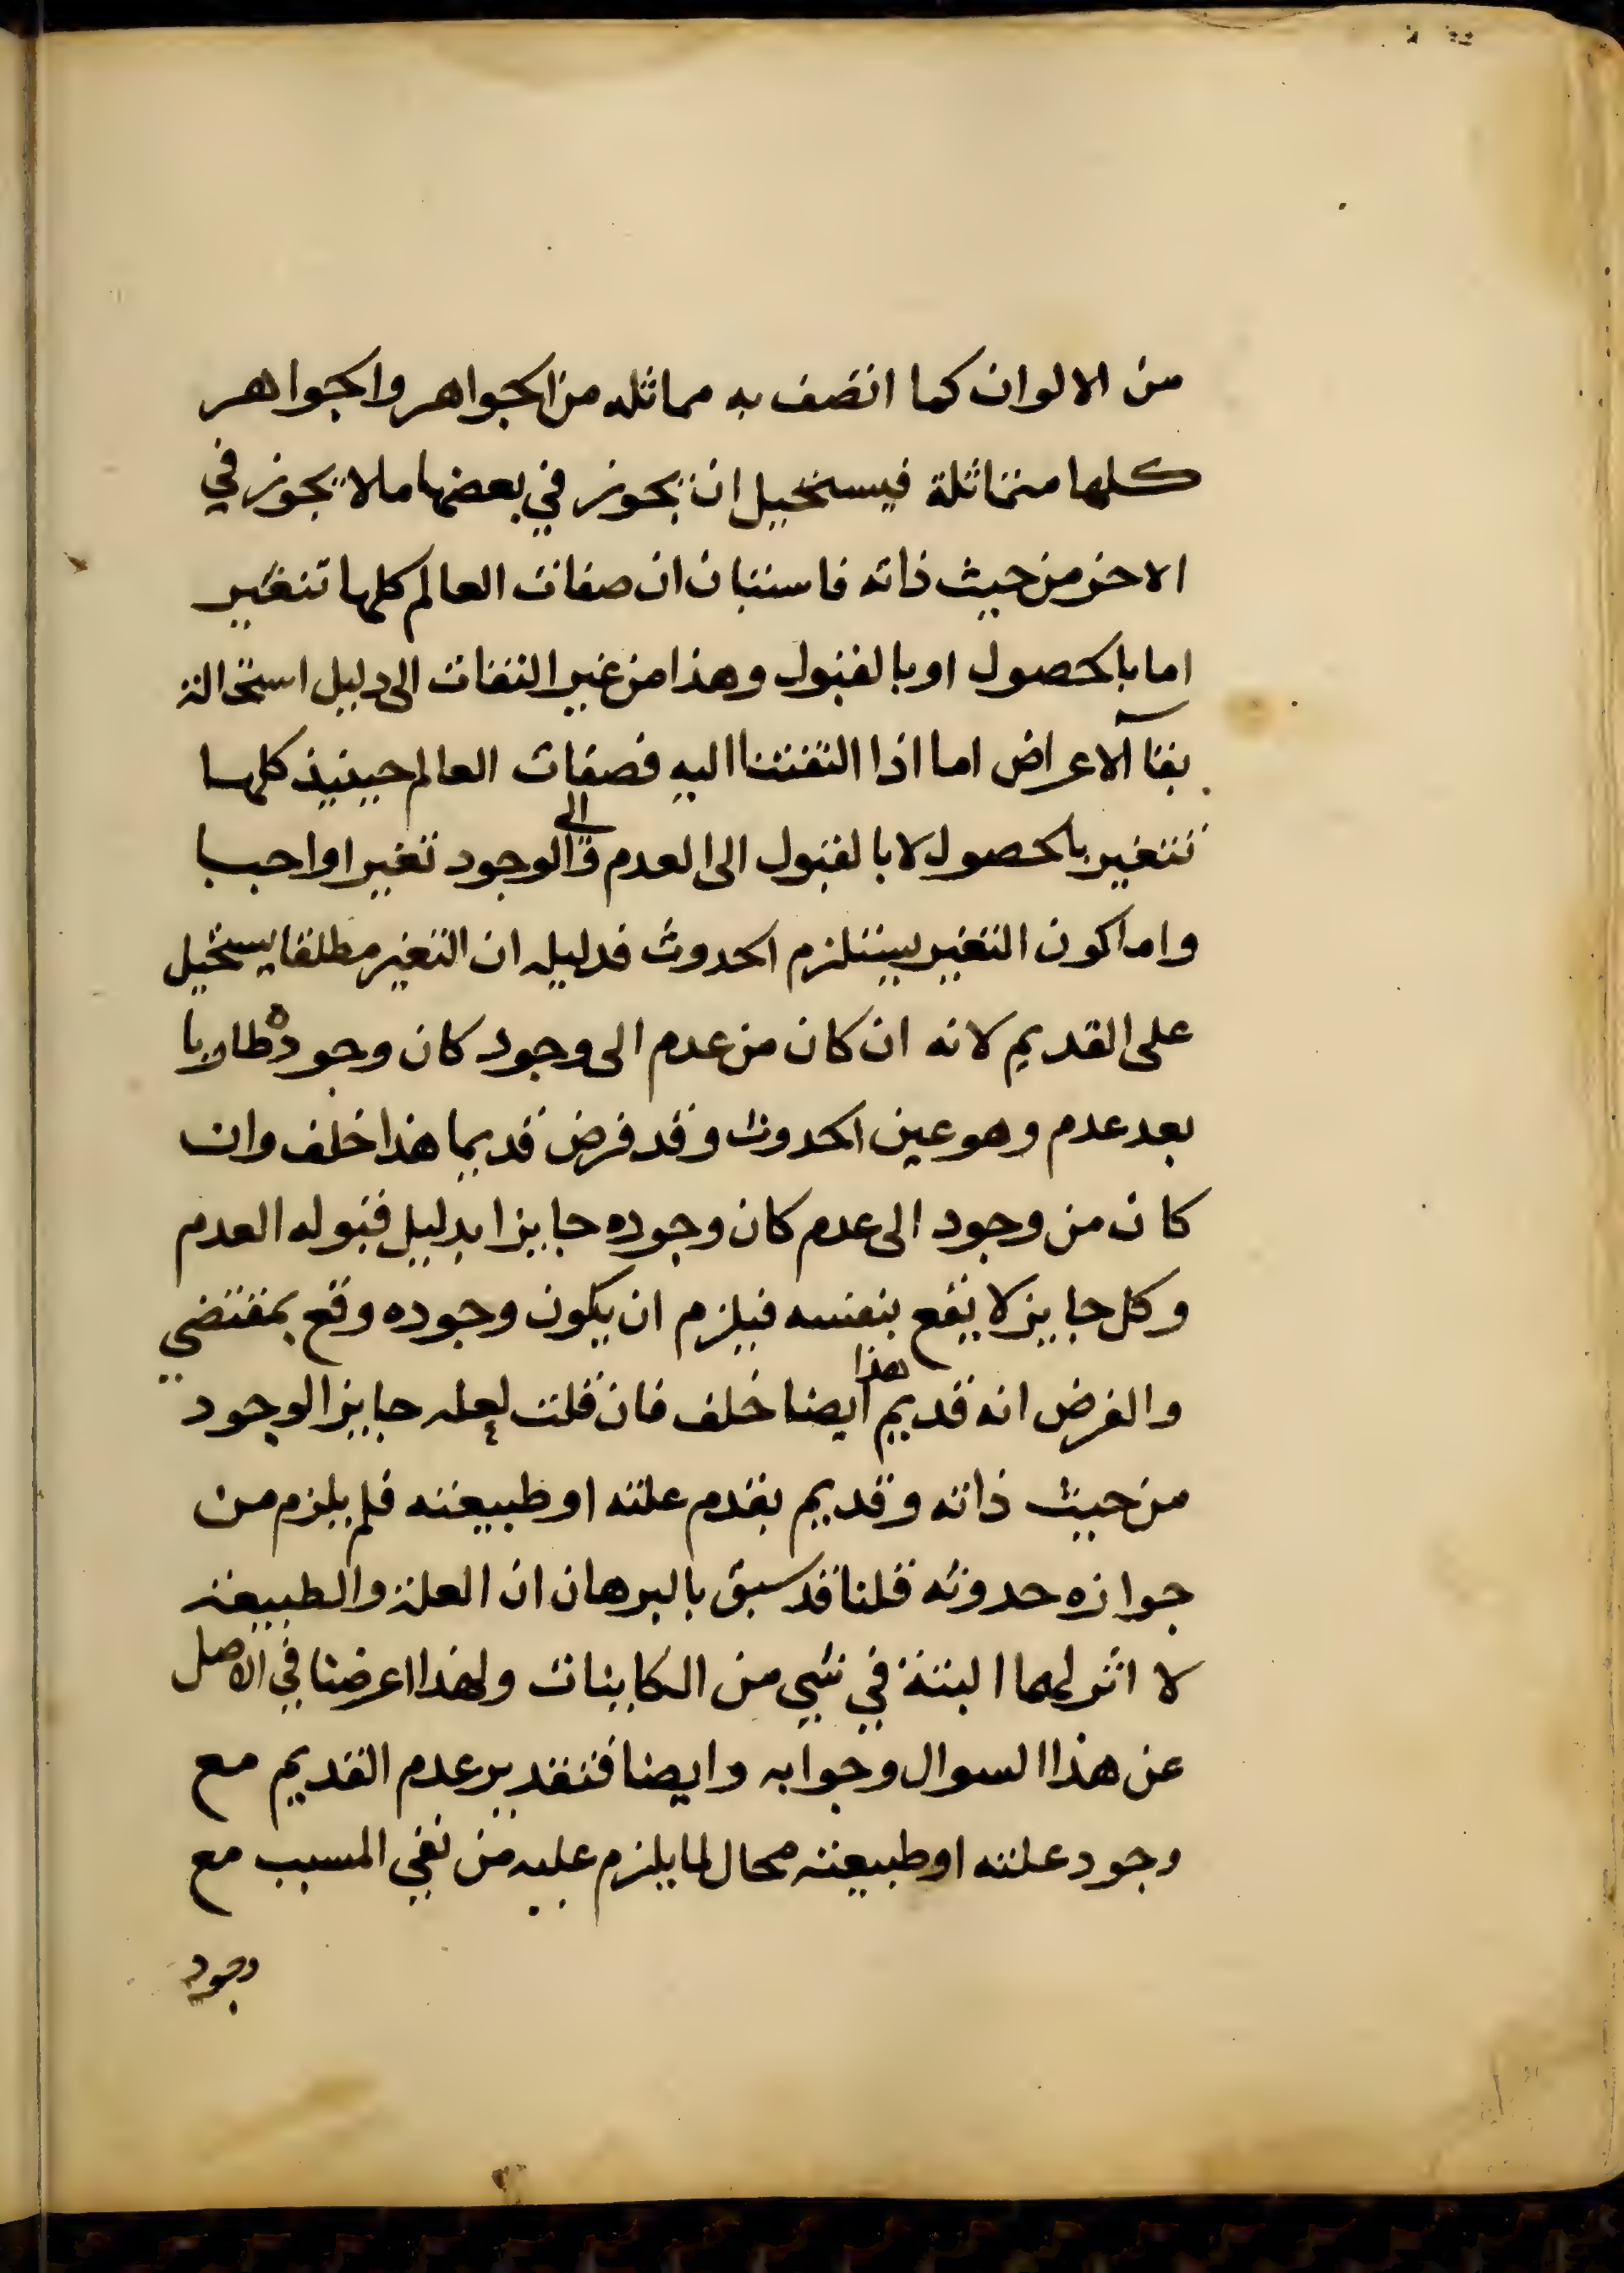 من الالوان كما اتصف به مماثله من الجواهر والجواهر
كلها متماثلة فيستحيل ان يجوز في بعضها ما لا يجوز في
الاخر من حيث ذاته فاستبان ان صفات العالم كلها تتغير
اما بالحصول او بالقبول وهذا من غير التفات الى دليل استحالة
بقآ الاعراض اما اذا التفتنا اليه فصفات العالم حينيذ كلها
تتغير بالحصول لا بالقبول الى العدم والى الوجود تغيرا واجبا
واما كون التغير يستلزم الحدوث فدليله ان التغير مطلقا يستحيل
على القديم لانه ان كان من عدم الى وجود كان وجوده طاريا
بعد عدم وهو عين الحدوث وقد فرض قديما هذا خلف وان
كان من وجود الى عدم كان وجوده جايزا بدليل قبوله العدم
وكل جايز لا يقع بنفسه فيلزم ان يكون وجوده وقع بمقتضي
والفرض انه قديم هذا ايضا خلف فان قلت لعله جايز الوجود
من حيث ذاته وقديم بقدم علته او طبيعته فلم يلزم من
جوازه حدوثه قلنا قد سبق بالبرهان ان العلة والطبيعة
لا اثر لهما البتة في شي من الكاينات ولهذا اعرضنا في الاصل
عن هذا السوال وجوابه وايضا فتقدير عدم القديم مع
وجود علته او طبيعته محال لما يلزم عليه من نفي المسبب مع
وجود